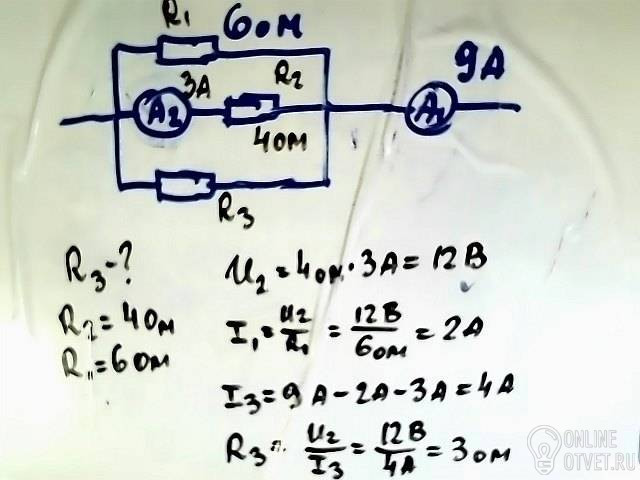 R₁ 6 ом
3А R₂ 9А
А₂ А₁
4 ом
R₃
R₃-?
R₂=4 ом
R₁=6 ом
U₂=4 ом·3А=12В
I₁=U₂/R₁=12В/6 ом=2А
I₃=9А-2А-3А=4А
R₃=U₂/I₃=12В/4А=3 ом
ONLINE
OTVET.RU